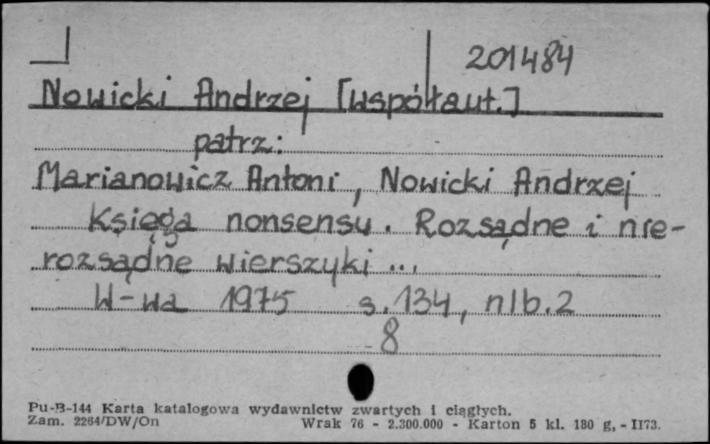 201484
Nowicki Andrzej [współaut.]
patrz:
Marianowicz Antoni, Nowicki Andrzej
Księga nonsensu. Rozsądne i nie-
rozsądne wierszyki ...
W-wa 1975 s. 134, nlb. 2
8
Pu-B-144 Karta katalogowa wydawnictw zwartych i ciągłych.
Zam. 2264/DW/On Wrak 76 - 2.300.000 - Karton 5 kl. 180 g, - II73.